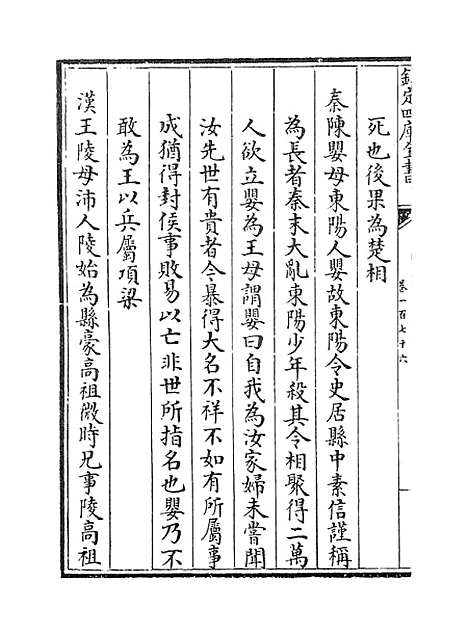 欽定四庫全書
卷一百七十六
死也後果為楚相
秦陳嬰母東陽人嬰故東陽令史居縣中素信謹稱
為長者秦末大亂東陽少年殺其令相聚得二萬
人欲立嬰為王母謂嬰曰自我為汝家婦未嘗聞
汝先世有貴者今暴得大名不祥不如有所屬事
成猶得封侯事敗易以亡非世所指名也嬰乃不
敢為王以兵屬項梁
漢王陵母沛人陵始為縣豪高祖微時兄事陵高祖